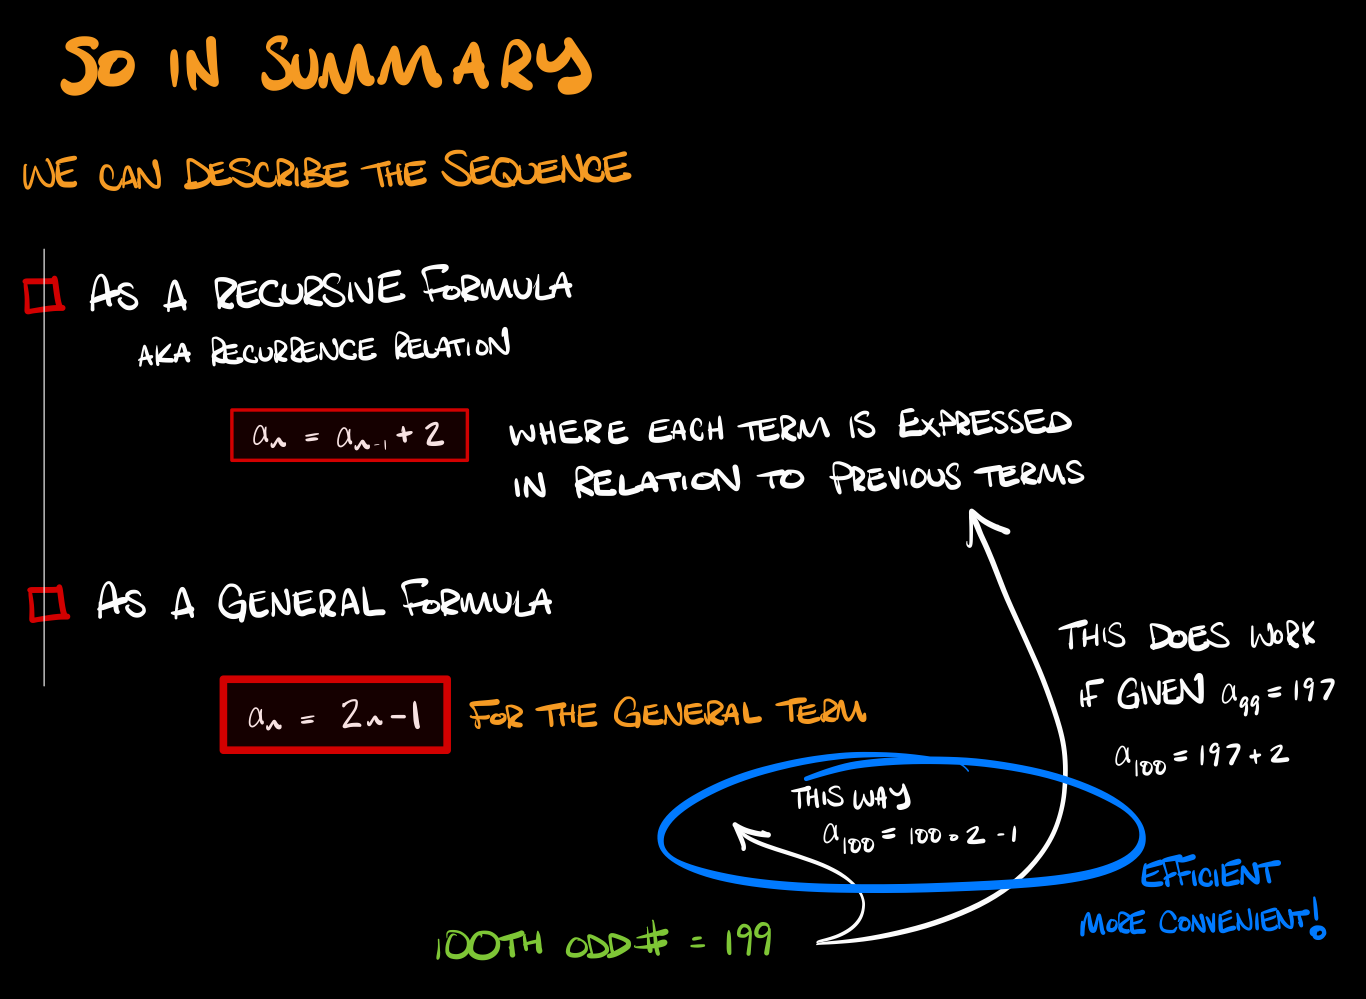 SO IN SUMMARY
WE CAN DESCRIBE THE SEQUENCE
AS A RECURSIVE FORMULA
AKA RECURRENCE RELATION
aₙ = aₙ₋₁ + 2
WHERE EACH TERM IS EXPRESSED
IN RELATION TO PREVIOUS TERMS
AS A GENERAL FORMULA
aₙ = 2n-1
FOR THE GENERAL TERM
THIS DOES WORK
IF GIVEN a₉₉ = 197
a₁₀₀ = 197 + 2
THIS WAY
a₁₀₀ = 100 • 2 - 1
EFFICIENT
MORE CONVENIENT!
100TH ODD # = 199